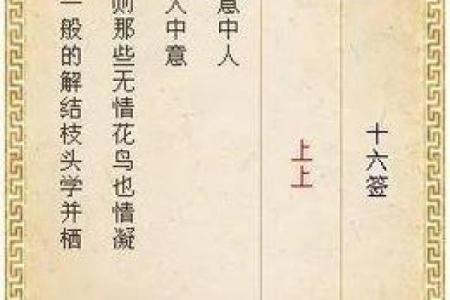 十六签
上上
意中人
人中意
则那些无情花鸟也情凝
一般的解结枝头学并栖